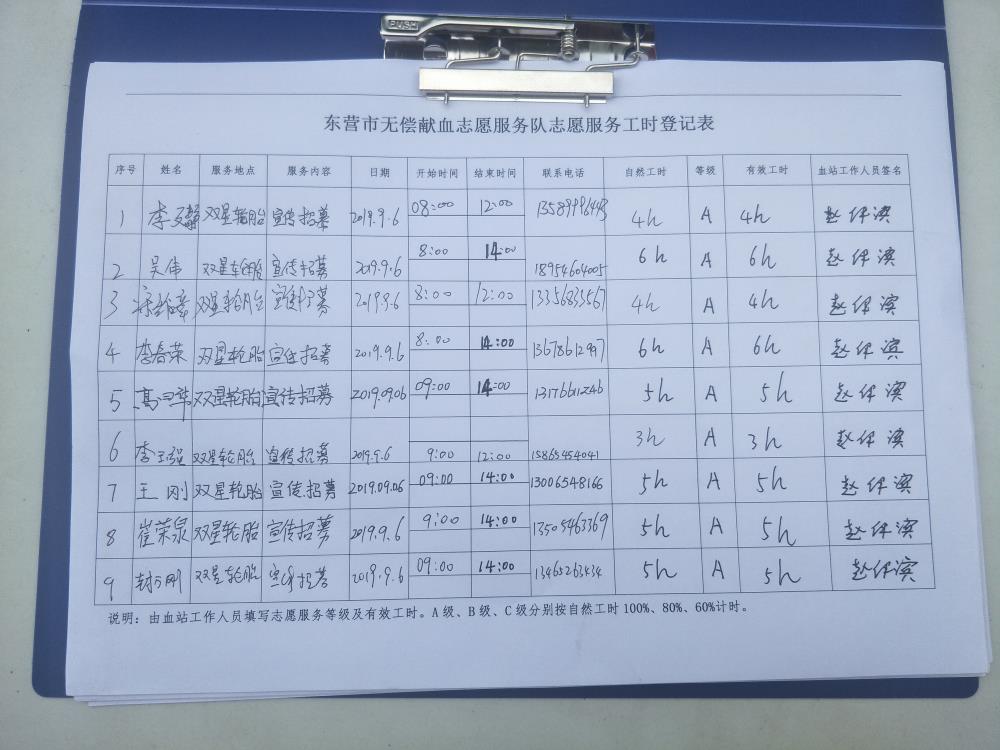 PUSH
东营市无偿献血志愿服务队志愿服务工时登记表
序号 姓名 服务地点 服务内容 日期 开始时间 结束时间 联系电话 自然工时 等级 有效工时 血站工作人员签名
1 李文馨 双星轮胎 宣传招募 2019.9.6 08:00 12:00 4h A 4h
2 吴伟 双星轮胎 宣传招募 2019.9.6 8:00 14:00 18954604005 6h A 6h
3 双星轮胎 宣传招募 2019.9.6 8:00 12:00 13356833567 4h A 4h
4 李春荣 双星轮胎 宣传招募 2019.9.6 8:00 14:00 13678612997 6h A 6h
5 双星轮胎 宣传招募 2019.09.06 09:00 14:00 13176611246 5h A 5h
6 李玉强 双星轮胎 宣传招募 2019.9.6 9:00 12:00 15865454041 3h A 3h
7 王刚 双星轮胎 宣传招募 2019.09.06 09:00 14:00 13006548166 5h A 5h
8 崔荣泉 双星轮胎 宣传招募 2019.9.6 9:00 14:00 13505463369 5h A 5h
9 封万刚 双星轮胎 宣传招募 2019.9.6 09:00 14:00 13465263434 5h A 5h
说明：由血站工作人员填写志愿服务等级及有效工时。A级、B级、C级分别按自然工时100%、80%、60%计时。